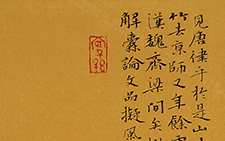 見唐律平於是山
竹去京師又年餘
漢魏齊梁間矣
解囊論文品擬風